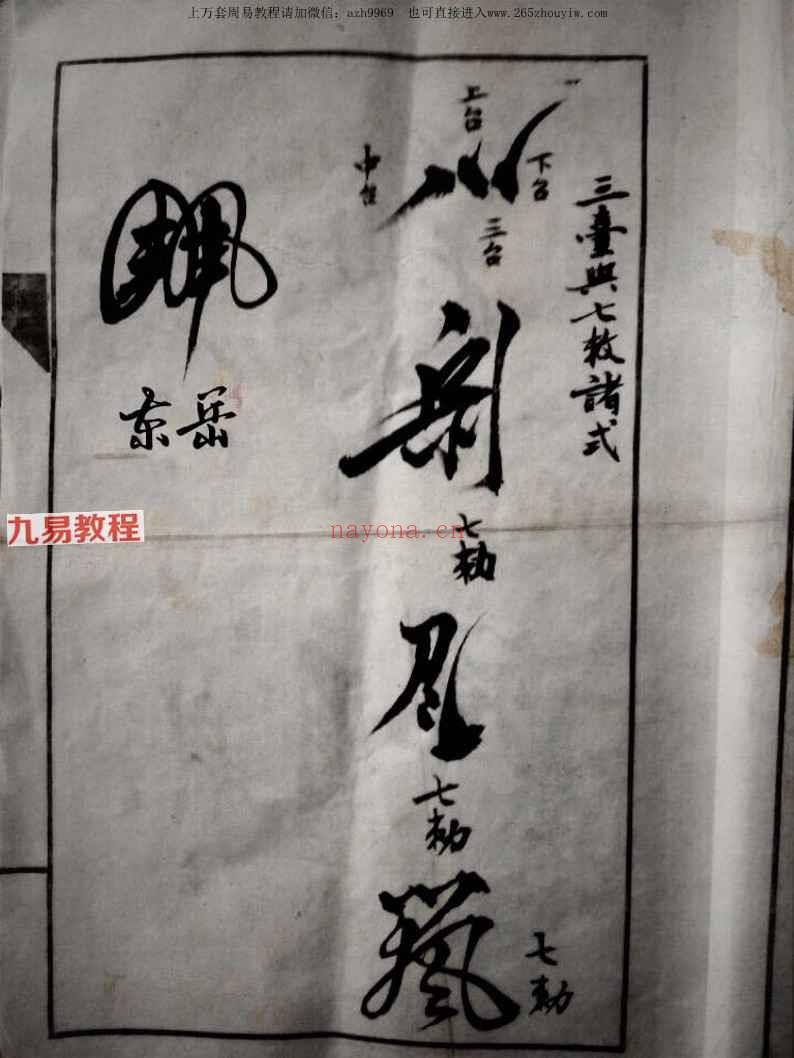 上万套周易教程请加微信：azh9969 也可直接进入www.265zhouyiw.com
三臺與七敕諸式
上台
中台
下台
三台
七勅
七勅
七勅
东岳
九易教程
nayona.cn